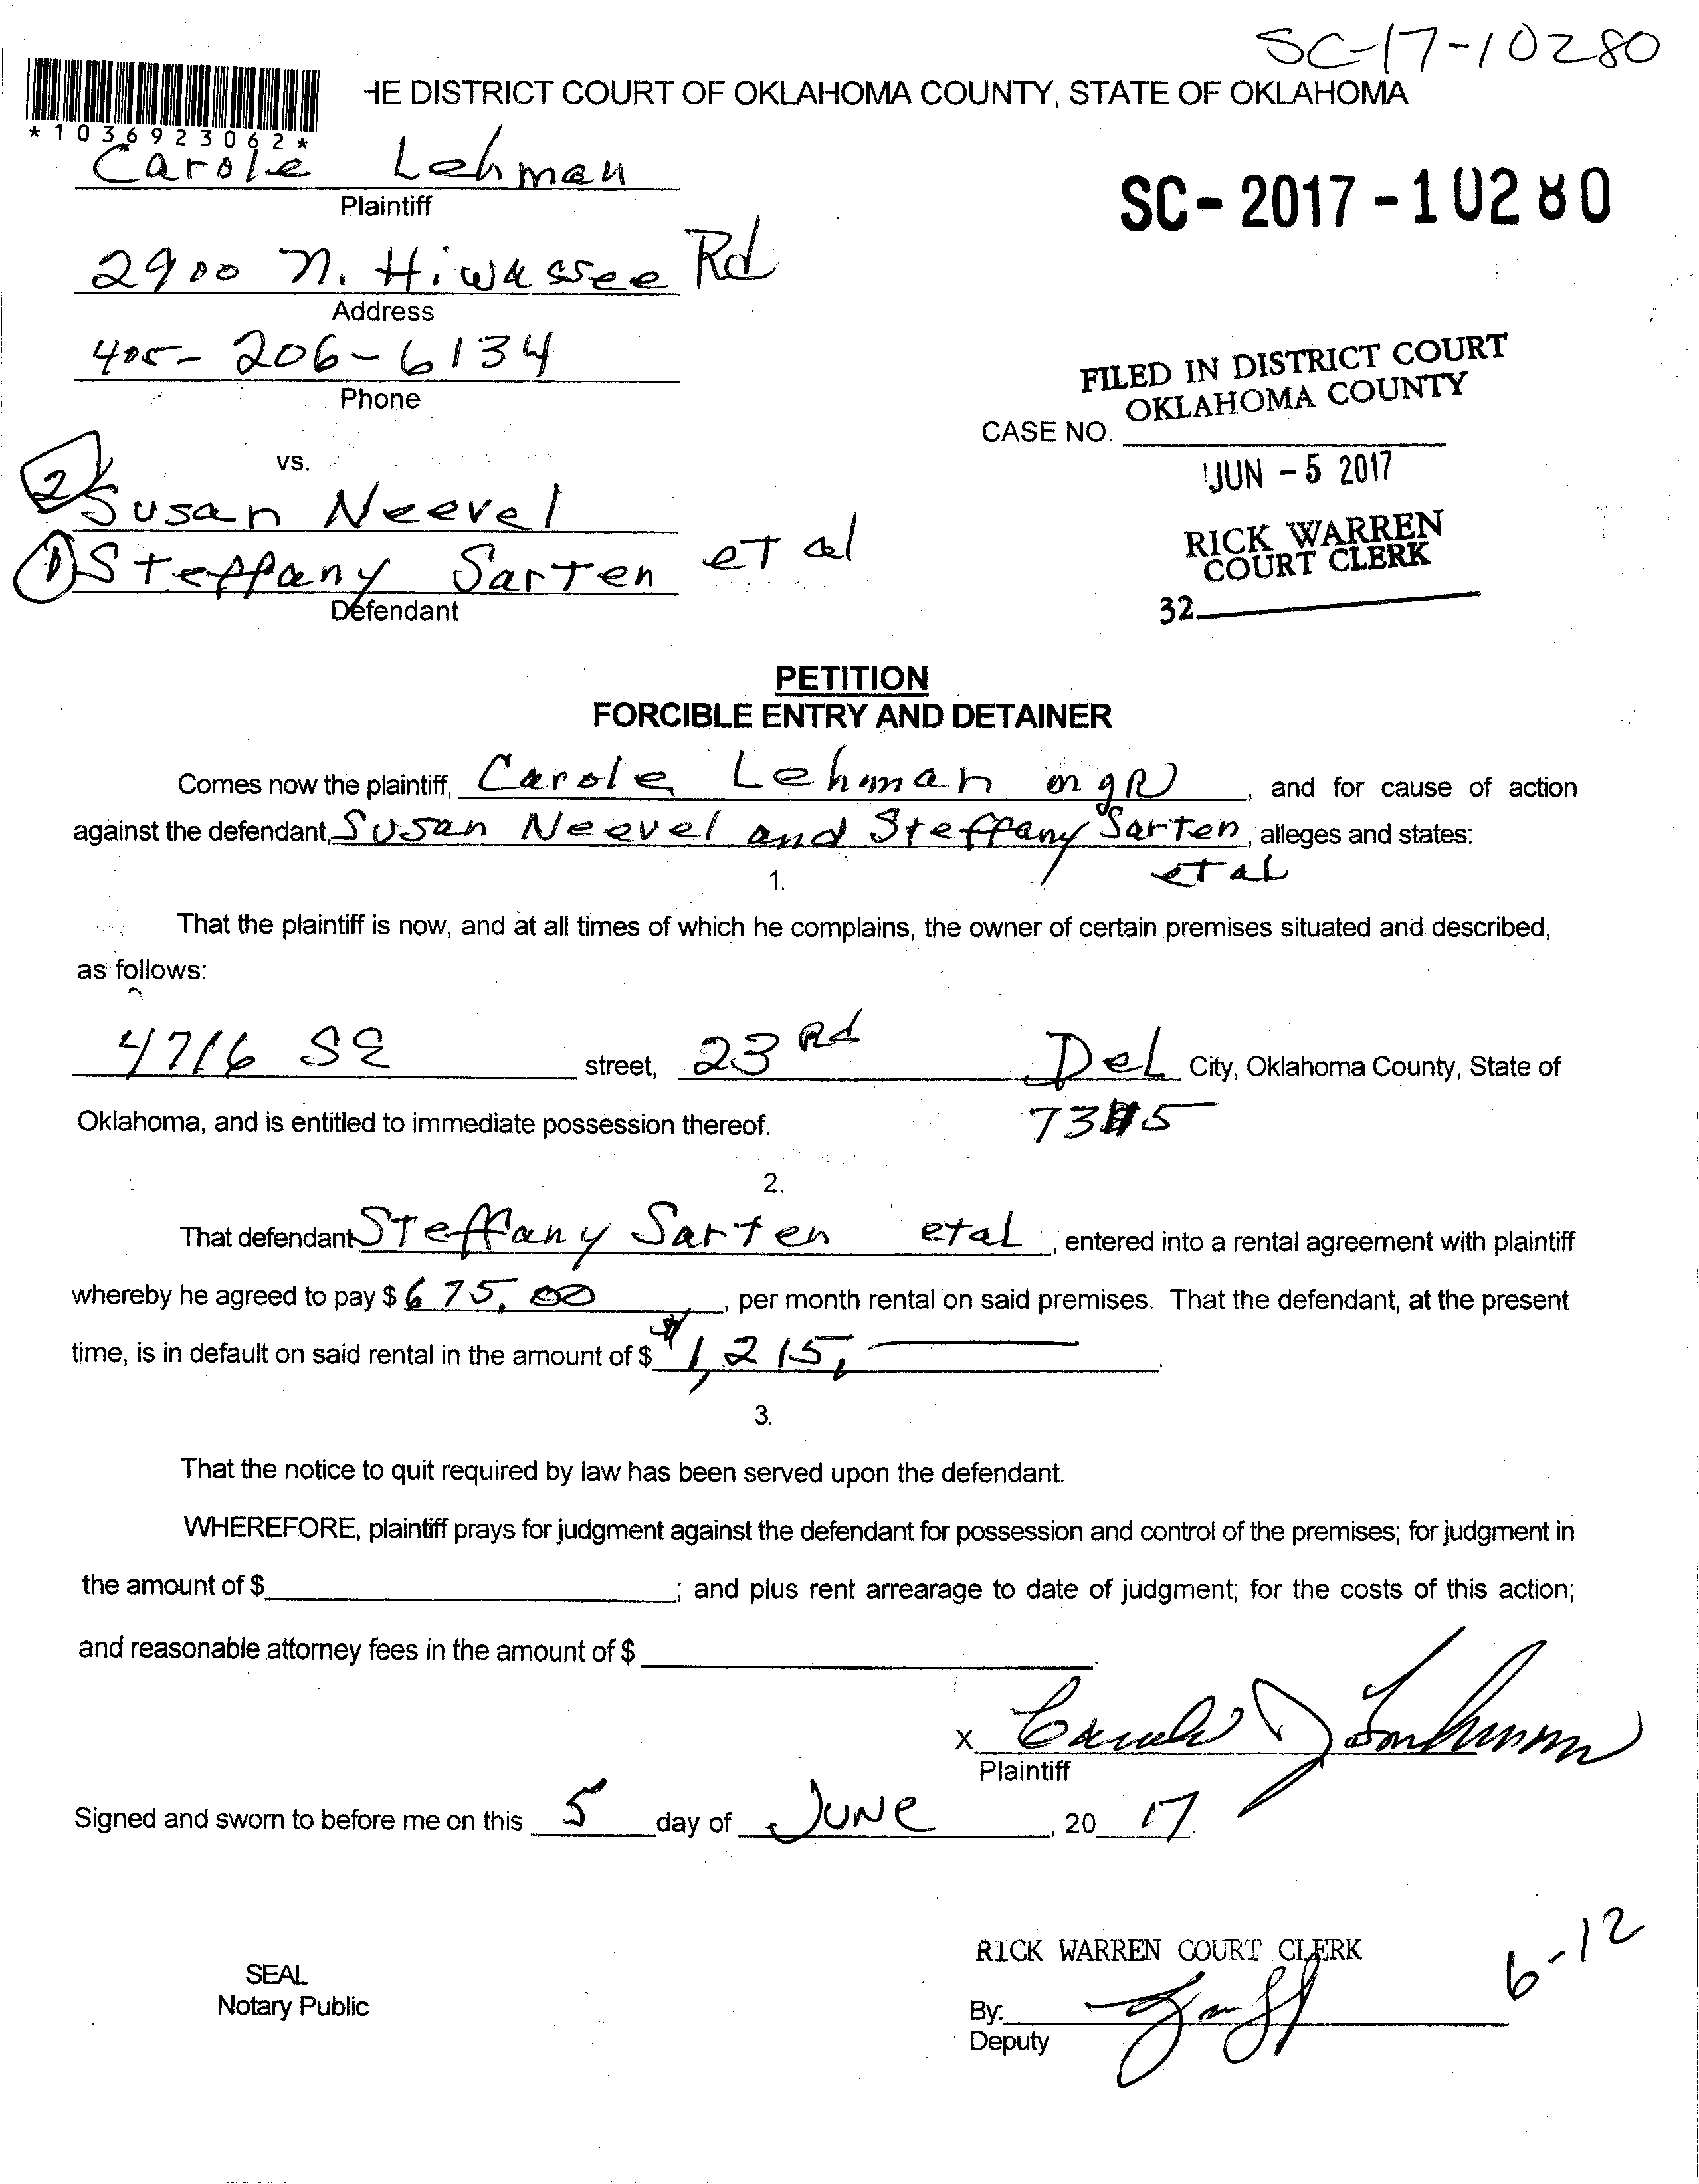 SC-17-10280
HE DISTRICT COURT OF OKLAHOMA COUNTY, STATE OF OKLAHOMA
*1036923062*
Carole Lehman
Plaintiff
SC-2017-10280
2900 N. Hiwassee Rd
Address
405-206-6134
Phone
FILED IN DISTRICT COURT
OKLAHOMA COUNTY
CASE NO.
vs.
JUN -5 2017
2 Susan Neevel
RICK WARREN
COURT CLERK
1 Steffany Sarten et al
Defendant
32
PETITION
FORCIBLE ENTRY AND DETAINER
Comes now the plaintiff, Carole Lehman mgR, and for cause of action
against the defendant, Susan Neevel and Steffany Sarten, alleges and states:
et al
1.
That the plaintiff is now, and at all times of which he complains, the owner of certain premises situated and described,
as follows:
4716 SE street, 23 Rd Del City, Oklahoma County, State of
Oklahoma, and is entitled to immediate possession thereof.
2.
That defendant Steffany Sarten etal, entered into a rental agreement with plaintiff
whereby he agreed to pay $ 675.00, per month rental on said premises. That the defendant, at the present
time, is in default on said rental in the amount of $ $1,215,.
3.
That the notice to quit required by law has been served upon the defendant.
WHEREFORE, plaintiff prays for judgment against the defendant for possession and control of the premises; for judgment in
the amount of $ ; and plus rent arrearage to date of judgment; for the costs of this action;
and reasonable attorney fees in the amount of $ .
X
Plaintiff
Signed and sworn to before me on this 5 day of June, 20 17.
RICK WARREN COURT CLERK
6-12
SEAL
Notary Public
By:
Deputy